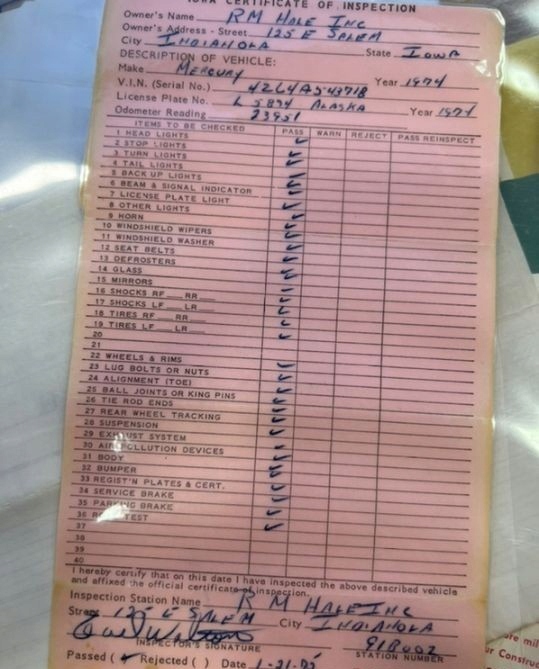 IOWA CERTIFICATE OF INSPECTION
Owner's Name R M HALE INC
Owner's Address - Street 125 E SALEM
City INDIANOLA State IOWA
DESCRIPTION OF VEHICLE:
Make MERCURY Year 1974
V.I.N. (Serial No.) 4Z64A543718
License Plate No. L 5894 ALASKA Year 1974
Odometer Reading 23951
ITEMS TO BE CHECKED PASS WARN REJECT PASS REINSPECT
1 HEAD LIGHTS ✓
2 STOP LIGHTS ✓
3 TURN LIGHTS ✓
4 TAIL LIGHTS ✓
5 BACK UP LIGHTS ✓
6 BEAM & SIGNAL INDICATOR ✓
7 LICENSE PLATE LIGHT ✓
8 OTHER LIGHTS ✓
9 HORN ✓
10 WINDSHIELD WIPERS ✓
11 WINDSHIELD WASHER ✓
12 SEAT BELTS ✓
13 DEFROSTERS ✓
14 GLASS ✓
15 MIRRORS ✓
16 SHOCKS RF RR ✓
17 SHOCKS LF LR ✓
18 TIRES RF RR ✓
19 TIRES LF LR ✓
20
21
22 WHEELS & RIMS ✓
23 LUG BOLTS OR NUTS ✓
24 ALIGNMENT (TOE) ✓
25 BALL JOINTS OR KING PINS ✓
26 TIE ROD ENDS ✓
27 REAR WHEEL TRACKING ✓
28 SUSPENSION ✓
29 EXHAUST SYSTEM ✓
30 AIR POLLUTION DEVICES ✓
31 BODY ✓
32 BUMPER ✓
33 REGIST'N PLATES & CERT. ✓
34 SERVICE BRAKE ✓
35 PARKING BRAKE ✓
36 ROAD TEST ✓
37
38
39
40
I hereby certify that on this date I have inspected the above described vehicle
and affixed the official certificate of inspection.
Inspection Station Name R M HALE INC
Street 125 E SALEM City INDIANOLA
918002
INSPECTOR'S SIGNATURE STATION NUMBER
Passed ( ✓ Rejected ( ) Date 1-21-75
are mil
ur Constru